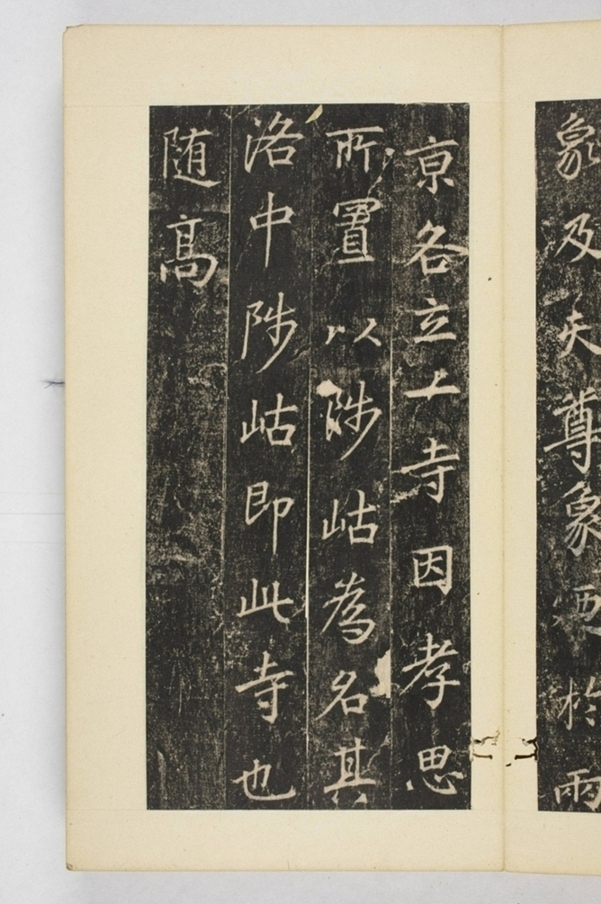 象及天尊象㷛於雨
京各立一寺因孝思
所置以陟岵為名其
洛中陟岵即此寺也
随髙